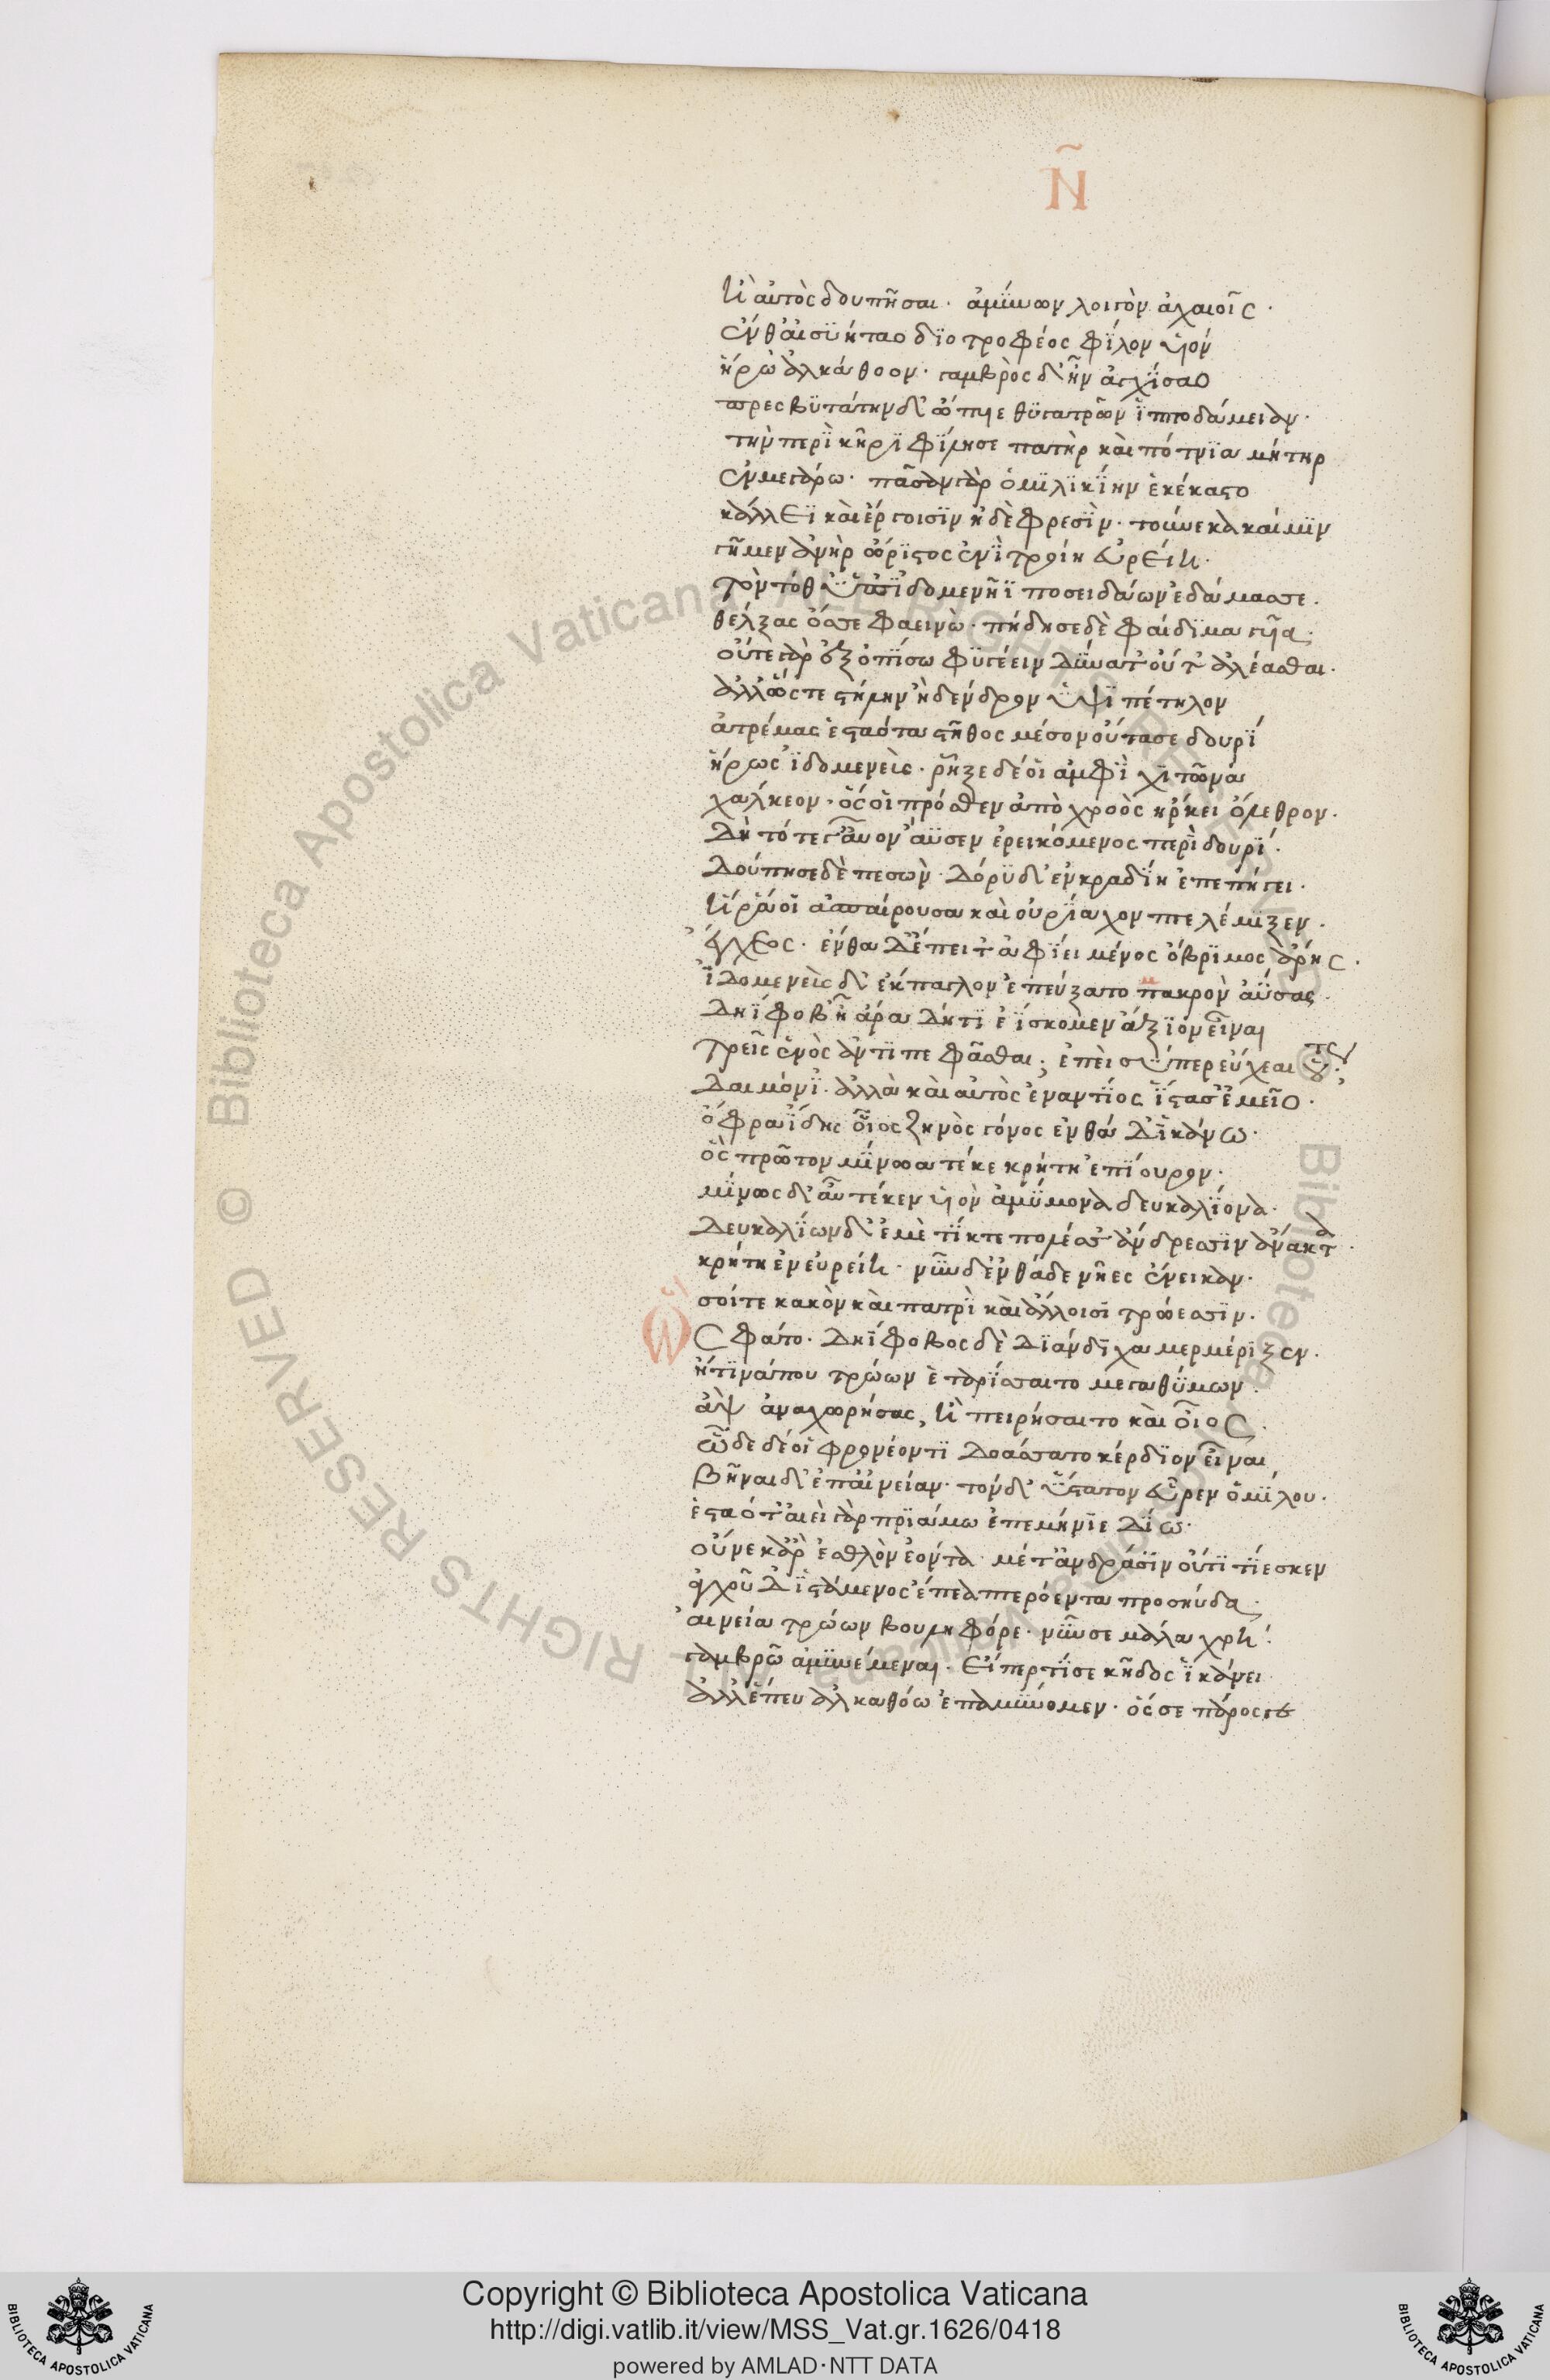 Ν̃
ἢ αὐτὸς δουπῆσαι· ἀμύνων λοιγὸν ἀχαιοῖς·
ἔνθ' αἰσϋήταο δϊοτροφέος φίλον υἱὸν
ἥρω' ἀλκάθοον· γαμβρὸς δ' ἦν ἀγχίσαο
πρεσβϋτάτην δ' ὤπυιε θϋγατρῶν ἱπποδάμειαν·
τὴν περὶ κῆρϊ φίλησε πατὴρ καὶ πότνϊα μήτηρ
ἐν μεγάρω· πᾶσαν γὰρ ὁμϊλϊκίην ἐκέκαστο
κάλλεϊ καὶ ἔργοισϊν ἠδὲ φρεσὶν· τοὔνεκα καί μϊν
γῆμεν ἀνὴρ ὤρϊστος ἐνὶ τροίη εὐρείη·
τὸν τόθ' ὑπ' ἰδομενῆϊ ποσειδάων ἐδάμασσε·
θέλξας ὄσσε φαεινὼ· πήδησε δὲ φαίδϊμα γυῖα·
οὔτε γὰρ ἐξοπίσω φϋγέειν δύνατ' οὔτ' ἀλέασθαι·
ἀλλ' ὥς τε στήλην ἢ δένδρον ὑψϊπέτηλον
ἀτρέμας ἑσταότα στῆθος μέσον οὔτασε δουρὶ
ἥρως ἰδομενεὺς· ῥῆξε δέ οἱ ἀμφὶ χϊτῶνα
χάλκεον· ὅς οἱ πρόσθεν ἀπὸ χροὸς ἤρκει ὄλεθρον·
δὴ τότε γ' αὖον ἄϋσεν ἐρεικόμενος περὶ δουρί·
δούπησε δὲ πεσὼν· δόρϋ δ' ἐν κραδίη ἐπεπήγει·
ἥ ῥά οἱ ἀσπαίρουσα καὶ οὐρίαχον πελέμϊξεν·
ἔγχεος· ἔνθα δ' ἔπειτ' ἀφίει μένος ὄβρϊμος ἄρης·
ἰδομενεὺς δ' ἔκπαγλον ἐπεύξατο μακρὸν ἀΰσας·
δηΐφοβ' ἦ ἄρα δή τϊ ἐΐσκομεν ἄξϊον εἶναι
τρεῖς ἑνὸς ἀντὶ πεφᾶσθαι; ἐπεὶ σύ περ εὔχεαι οὕτως·
δαιμόνϊ'· ἀλλὰ καὶ αὐτὸς ἐναντίος ἵστασ' ἐμεῖο·
ὄφρα ἴδης οἷος ζηνὸς γόνος ἐνθάδ' ἱκάνω·
ὃς πρῶτον μίνωα τέκε κρήτη ἐπίουρον·
μίνως δ' αὖ τέκεν υἱὸν ἀμύμονα δευκαλίονα·
δευκαλίων δ' ἐμὲ τίκτε πολέσσ' ἄνδρεσσϊν ἄνακτα·
κρήτη ἐν εὐρείη· νῦν δ' ἐνθάδε νῆες ἔνεικαν·
σοί τε κακὸν καὶ πατρὶ καὶ ἄλλοισϊ τρώεσσϊν·
Ὣς φάτο· δηΐφοβος δὲ δϊάνδϊχα μερμέριξεν·
ἤ τϊνά που τρώων ἑταρίσσαιτο μεγαθύμων·
ἂψ ἀναχωρήσας, ἢ πειρήσαιτο καὶ οἶος·
ὧδε δέ οἱ φρονέοντϊ δοάσσατο κέρδϊον εἶναι
βῆναι δ' ἐπ' αἰνείαν· τὸν δ' ὕστατον εὗρεν ὁμίλου·
ἑσταότ' αἰεὶ γὰρ πρϊάμω ἐπεμήνϊε δίω·
οὕνεκ' ἄρ' ἐσθλὸν ἐόντα μέτ' ἀνδράσϊν οὔτϊ τίεσκεν
ἀγχοῦ δ' ἱστάμενος ἔπεα πτερόεντα προσηύδα·
αἰνεία τρώων βουληφόρε· νῦν σε μάλα χρὴ·
γαμβρῶ ἀμϋνέμεναι· εἴπερ τί σε κῆδος ἱκάνει
ἀλλ' ἕπευ ἀλκαθόω ἐπαμύνομεν· ὅς σε πάρος γε
Copyright © Biblioteca Apostolica Vaticana
http://digi.vatlib.it/view/MSS_Vat.gr.1626/0418
powered by AMLAD·NTT DATA